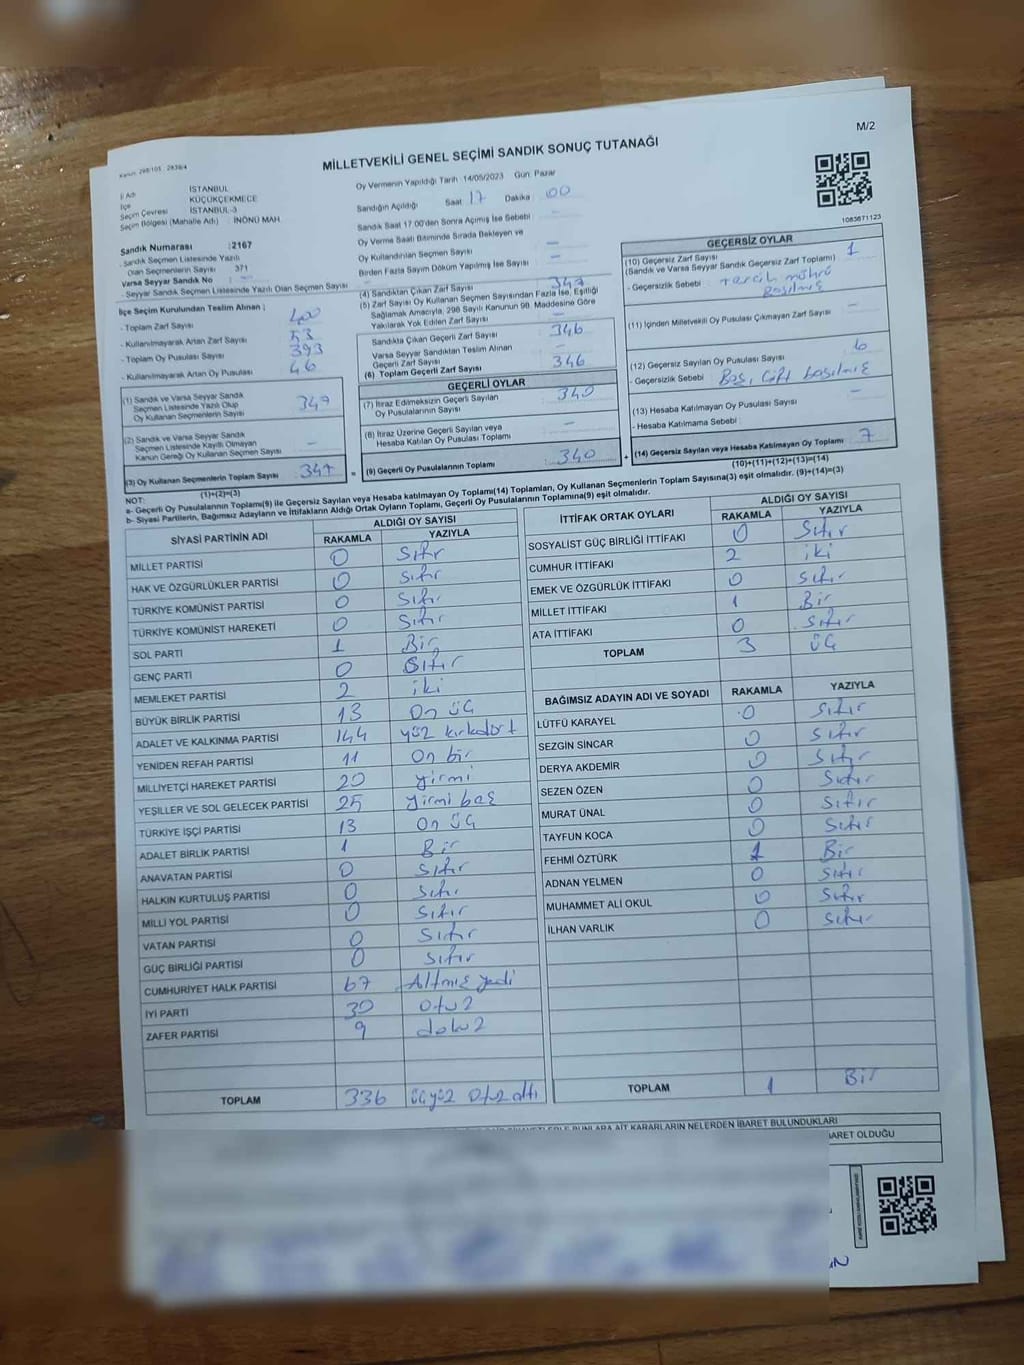 M/2
Kanun: 298/105 - 2839/4
MİLLETVEKİLİ GENEL SEÇİMİ SANDIK SONUÇ TUTANAĞI
İl Adı : İSTANBUL
İlçe : KÜÇÜKÇEKMECE
Seçim Çevresi : İSTANBUL-3
Seçim Bölgesi (Mahalle Adı) : İNÖNÜ MAH
Sandık Numarası : 2167
- Sandık Seçmen Listesinde Yazılı
Olan Seçmenlerin Sayısı : 371
Varsa Seyyar Sandık No : -
- Seyyar Sandık Seçmen Listesinde Yazılı Olan Seçmen Sayısı -
İlçe Seçim Kurulundan Teslim Alınan ;
- Toplam Zarf Sayısı 400
- Kullanılmayarak Artan Zarf Sayısı 53
- Toplam Oy Pusulası Sayısı 393
- Kullanılmayarak Artan Oy Pusulası 46
(1) Sandık ve Varsa Seyyar Sandık
Seçmen Listesinde Yazılı Olup
Oy Kullanan Seçmenlerin Sayısı 347
(2) Sandık ve Varsa Seyyar Sandık
Seçmen Listesinde Kayıtlı Olmayan
Kanun Gereği Oy Kullanan Seçmen Sayısı -
(3) Oy Kullanan Seçmenlerin Toplam Sayısı 347
(1)+(2)=(3)
Oy Vermenin Yapıldığı Tarih :14/05/2023 Gün: Pazar
Sandığın Açıldığı Saat 17 Dakika : 00
Sandık Saat 17:00'den Sonra Açılmış İse Sebebi : -
Oy Verme Saati Bitiminde Sırada Bekleyen ve
Oy Kullandırılan Seçmen Sayısı -
Birden Fazla Sayım Döküm Yapılmış İse Sayısı -
(4) Sandıktan Çıkan Zarf Sayısı 347
(5) Zarf Sayısı Oy Kullanan Seçmen Sayısından Fazla İse, Eşitliği
Sağlamak Amacıyla, 298 Sayılı Kanunun 98. Maddesine Göre
Yakılarak Yok Edilen Zarf Sayısı -
Sandıkta Çıkan Geçerli Zarf Sayısı 346
Varsa Seyyar Sandıktan Teslim Alınan
Geçerli Zarf Sayısı -
(6) Toplam Geçerli Zarf Sayısı 346
GEÇERLİ OYLAR
(7) İtiraz Edilmeksizin Geçerli Sayılan
Oy Pusulalarının Sayısı 340
(8) İtiraz Üzerine Geçerli Sayılan veya
Hesaba Katılan Oy Pusulası Toplamı -
= (9) Geçerli Oy Pusulalarının Toplamı 340
1083871123
GEÇERSİZ OYLAR
(10) Geçersiz Zarf Sayısı
(Sandık ve Varsa Seyyar Sandık Geçersiz Zarf Toplamı) 1
- Geçersizlik Sebebi : Tercih mührü
Basılmış
(11) İçinden Milletvekili Oy Pusulası Çıkmayan Zarf Sayısı -
(12) Geçersiz Sayılan Oy Pusulası Sayısı 6
- Geçersizlik Sebebi : Boş, Çift basılmış
(13) Hesaba Katılmayan Oy Pusulası Sayısı -
- Hesaba Katılmama Sebebi :
+ (14) Geçersiz Sayılan veya Hesaba Katılmayan Oy Toplamı 7
(10)+(11)+(12)+(13)=(14)
NOT:
a- Geçerli Oy Pusulalarının Toplamı(9) ile Geçersiz Sayılan veya Hesaba katılmayan Oy Toplamı(14) Toplamları, Oy Kullanan Seçmenlerin Toplam Sayısına(3) eşit olmalıdır. (9)+(14)=(3)
b- Siyasi Partilerin, Bağımsız Adayların ve İttifakların Aldığı Ortak Oyların Toplamı, Geçerli Oy Pusulalarının Toplamına(9) eşit olmalıdır.
SİYASİ PARTİNİN ADI ALDIĞI OY SAYISI
RAKAMLA YAZIYLA
MİLLET PARTİSİ 0 Sıfır
HAK VE ÖZGÜRLÜKLER PARTİSİ 0 Sıfır
TÜRKİYE KOMÜNİST PARTİSİ 0 Sıfır
TÜRKİYE KOMÜNİST HAREKETİ 0 Sıfır
SOL PARTİ 1 Bir
GENÇ PARTİ 0 Sıfır
MEMLEKET PARTİSİ 2 iki
BÜYÜK BİRLİK PARTİSİ 13 On üç
ADALET VE KALKINMA PARTİSİ 144 yüz kırkdört
YENİDEN REFAH PARTİSİ 11 On bir
MİLLİYETÇİ HAREKET PARTİSİ 20 yirmi
YEŞİLLER VE SOL GELECEK PARTİSİ 25 yirmi beş
TÜRKİYE İŞÇİ PARTİSİ 13 On üç
ADALET BİRLİK PARTİSİ 1 Bir
ANAVATAN PARTİSİ 0 Sıfır
HALKIN KURTULUŞ PARTİSİ 0 Sıfır
MİLLİ YOL PARTİSİ 0 Sıfır
VATAN PARTİSİ 0 Sıfır
GÜÇ BİRLİĞİ PARTİSİ 0 Sıfır
CUMHURİYET HALK PARTİSİ 67 Altmış yedi
İYİ PARTİ 30 Otuz
ZAFER PARTİSİ 9 dokuz
TOPLAM 336 üçyüz Otuz altı
İTTİFAK ORTAK OYLARI ALDIĞI OY SAYISI
RAKAMLA YAZIYLA
SOSYALİST GÜÇ BİRLİĞİ İTTİFAKI 0 Sıfır
CUMHUR İTTİFAKI 2 iki
EMEK VE ÖZGÜRLÜK İTTİFAKI 0 Sıfır
MİLLET İTTİFAKI 1 Bir
ATA İTTİFAKI 0 Sıfır
TOPLAM 3 üç
BAĞIMSIZ ADAYIN ADI VE SOYADI RAKAMLA YAZIYLA
LÜTFÜ KARAYEL 0 Sıfır
SEZGİN SİNCAR 0 Sıfır
DERYA AKDEMİR 0 Sıfır
SEZEN ÖZEN 0 Sıfır
MURAT ÜNAL 0 Sıfır
TAYFUN KOCA 0 Sıfır
FEHMİ ÖZTÜRK 1 Bir
ADNAN YELMEN 0 Sıfır
MUHAMMET ALİ OKUL 0 Sıfır
İLHAN VARLIK 0 Sıfır
TOPLAM 1 Bir
BUNLARA AİT KARARLARIN NELERDEN İBARET BULUNDUKLARI
OLDUĞU